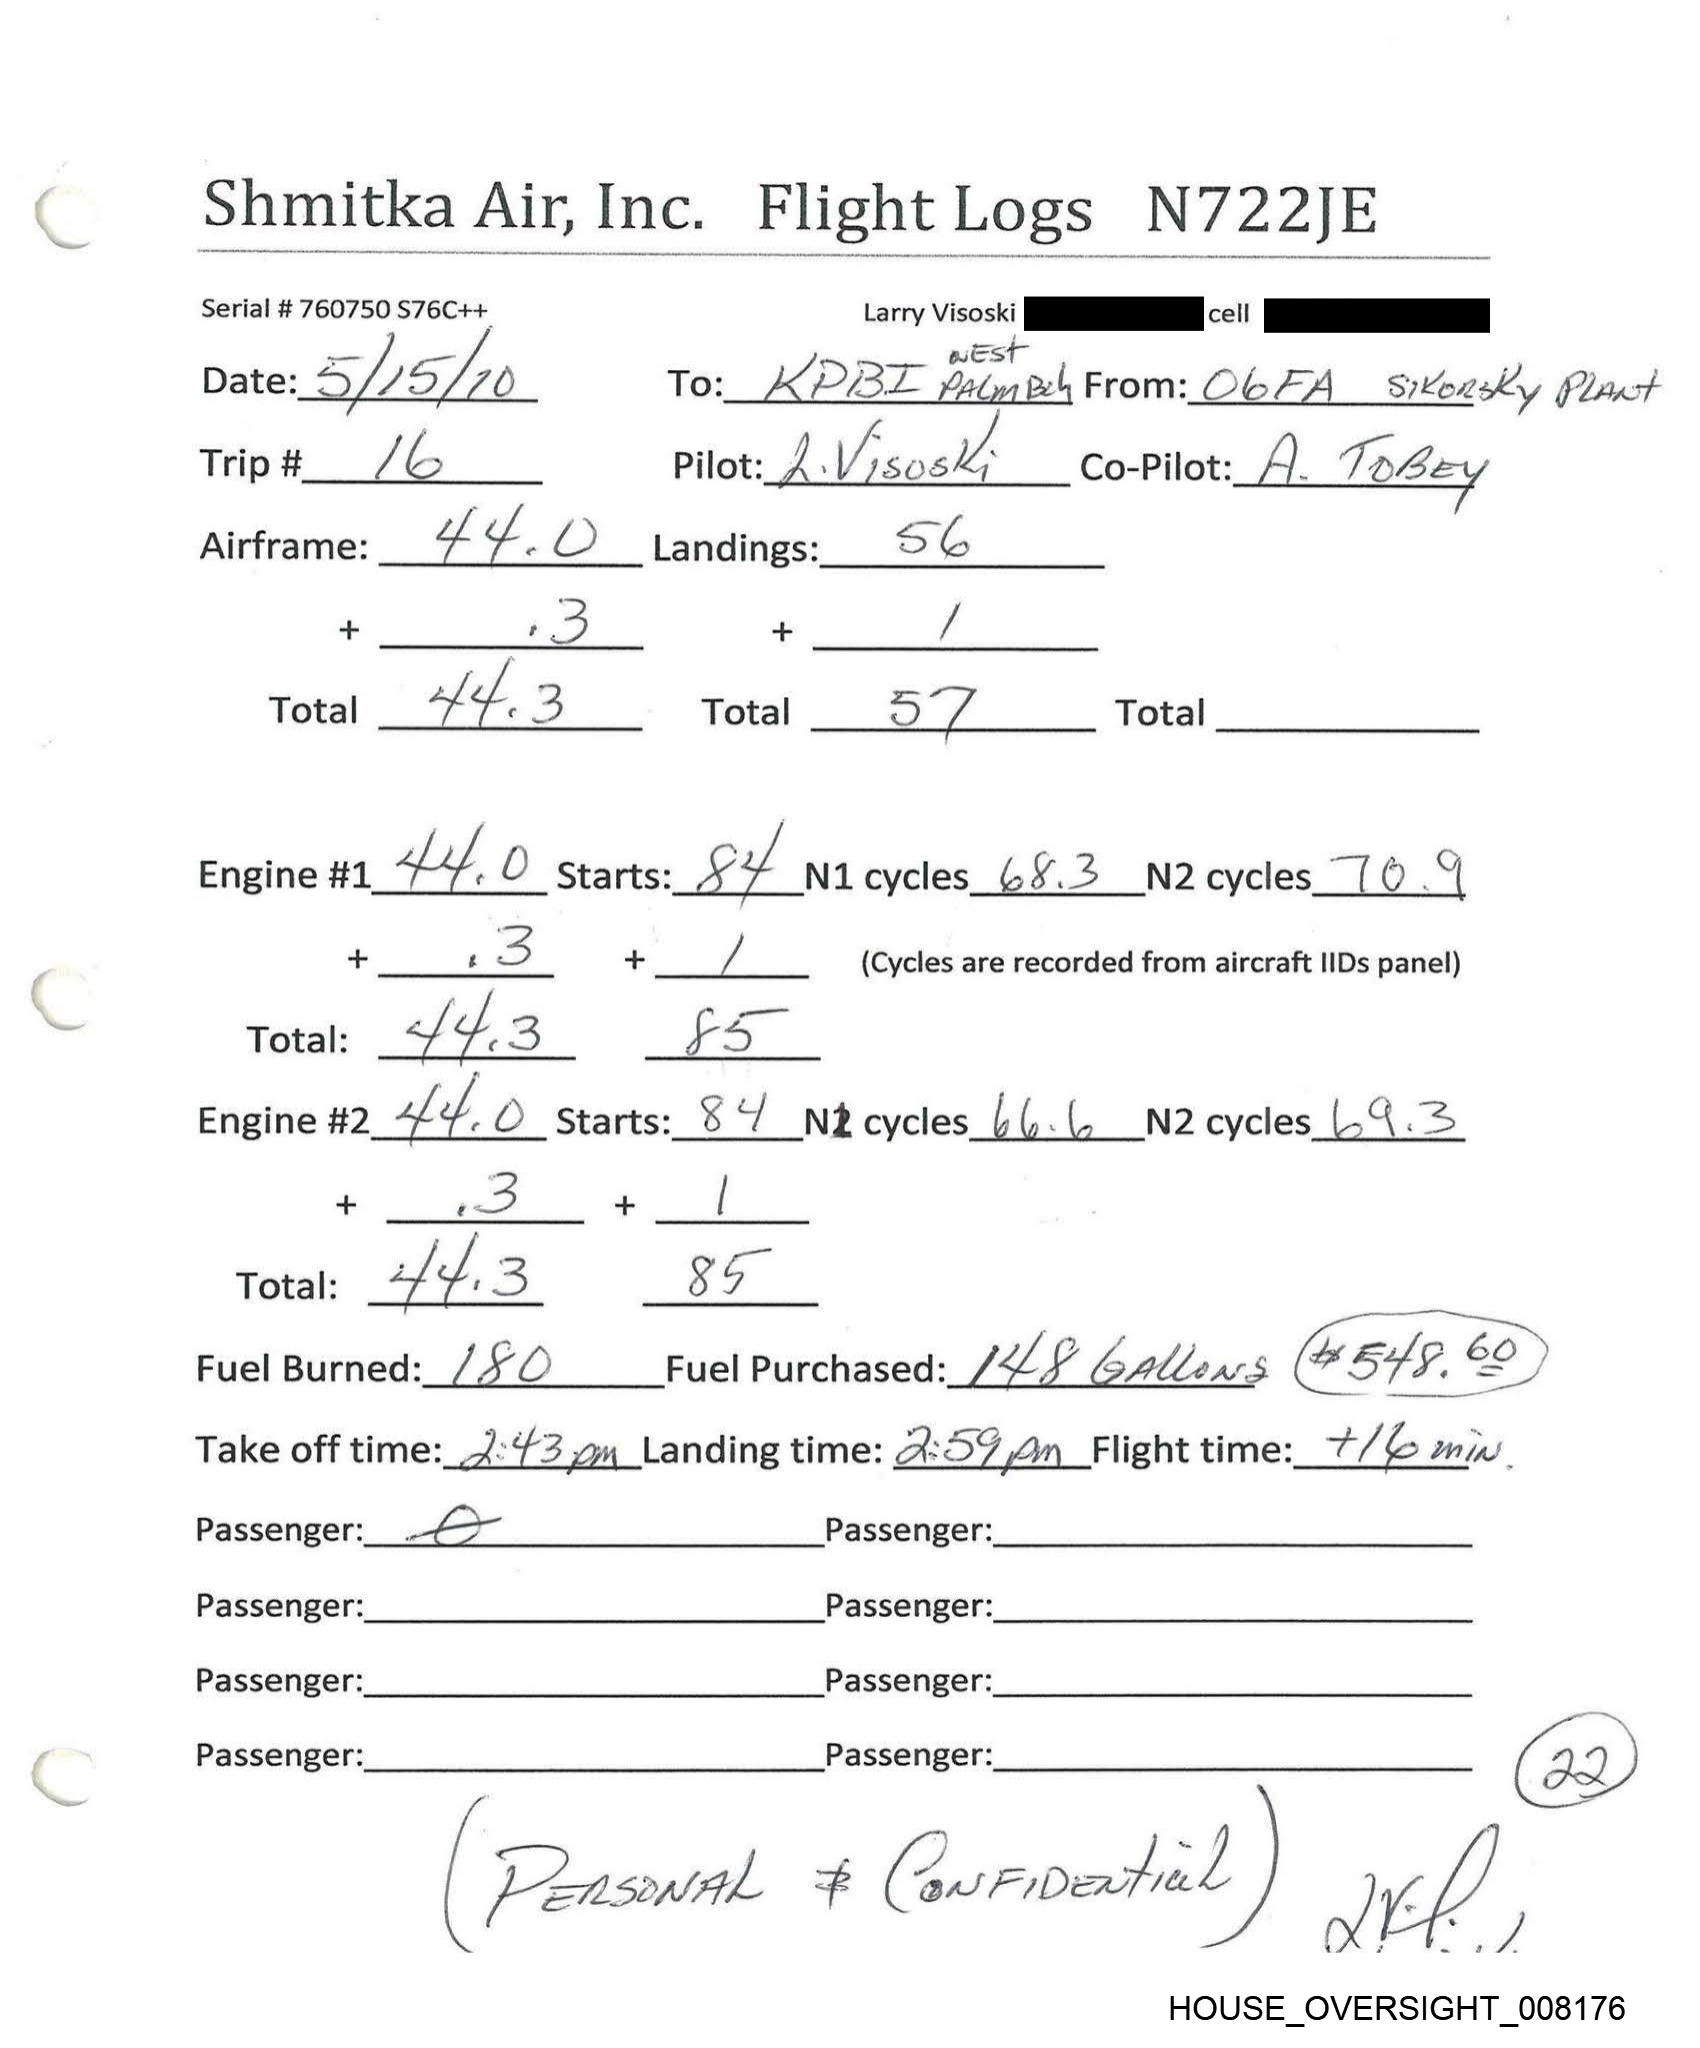 Shmitka Air, Inc. Flight Logs N722JE
Serial # 760750 S76C++ Larry Visoski cell
Date: 5/15/10 To: KPBI WEST PALM Bch From: 06FA SIKORSKY PLANT
Trip # 16 Pilot: L. Visoski Co-Pilot: A. TOBEY
Airframe: 44.0 Landings: 56
+ .3 + 1
Total 44.3 Total 57 Total
Engine #1 44.0 Starts: 84 N1 cycles 68.3 N2 cycles 70.9
+ .3 + 1 (Cycles are recorded from aircraft IIDs panel)
Total: 44.3 85
Engine #2 44.0 Starts: 84 N1 cycles 66.6 N2 cycles 69.3
+ .3 + 1
Total: 44.3 85
Fuel Burned: 180 Fuel Purchased: 148 GALLONS $548.60
Take off time: 2:43 pm Landing time: 2:59 pm Flight time: +16 min.
Passenger: 0 Passenger:
Passenger: Passenger:
Passenger: Passenger:
Passenger: Passenger:
22
(PERSONAL & CONFIDENTIAL)
HOUSE_OVERSIGHT_008176